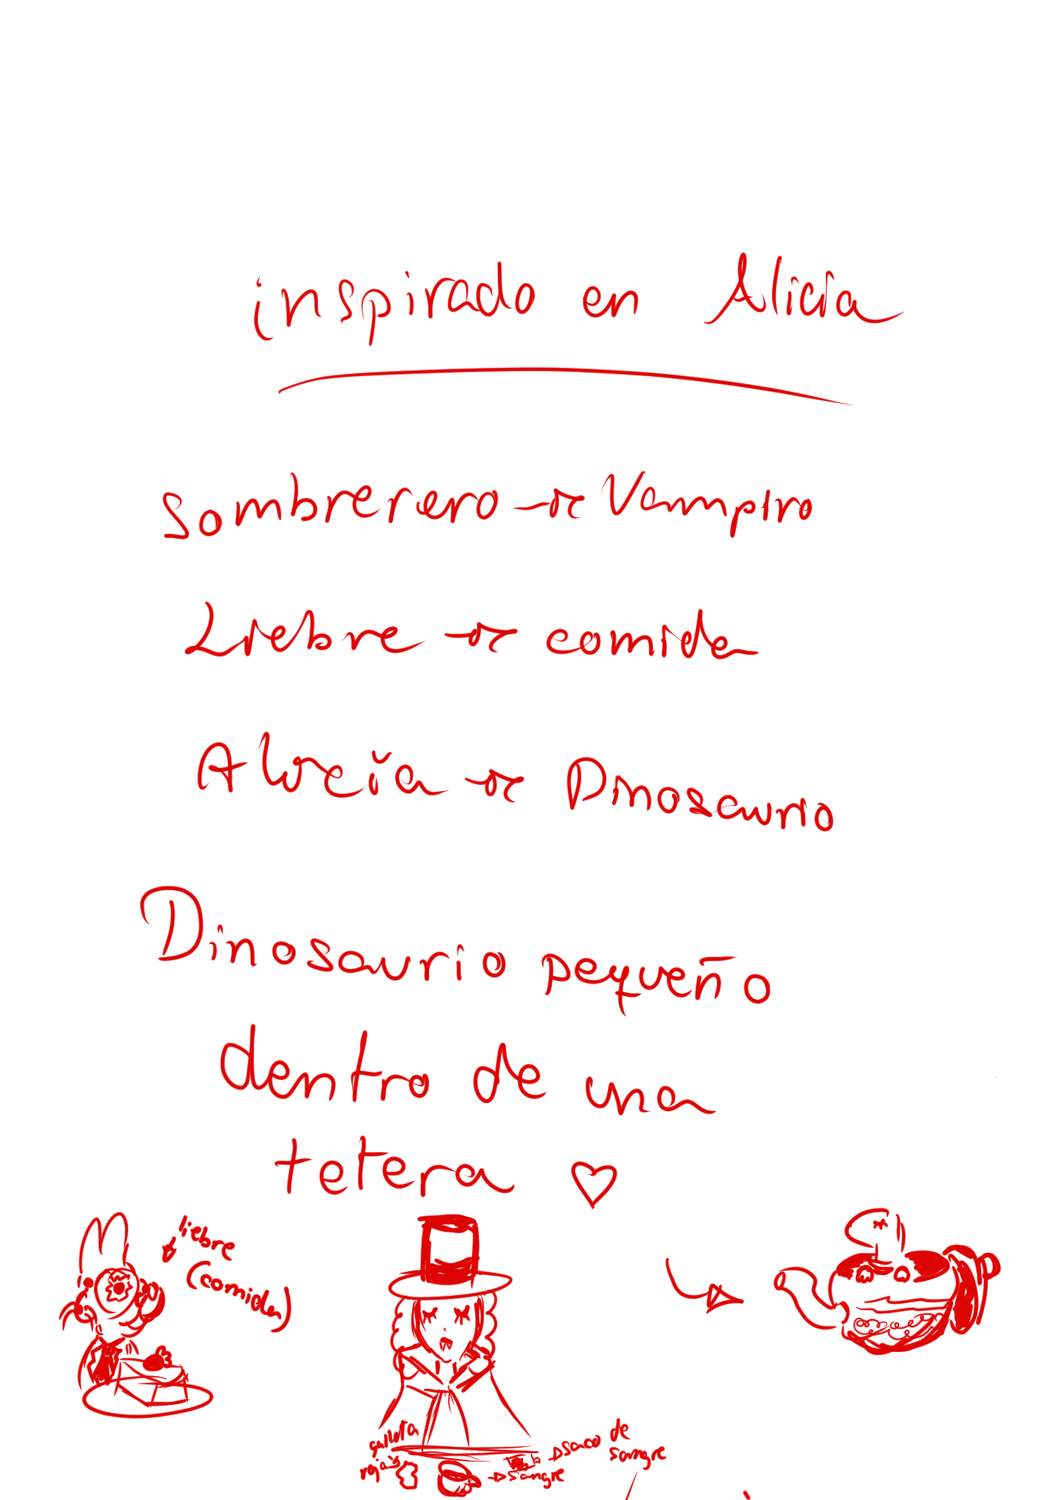 inspirado en Alicia
Sombrerero → Vampiro
Liebre → comida
Alicia → Dinosaurio
Dinosaurio pequeño
dentro de una
tetera ♡
liebre
(comida)
galleta
roja
→ sangre
→ saco de
sangre